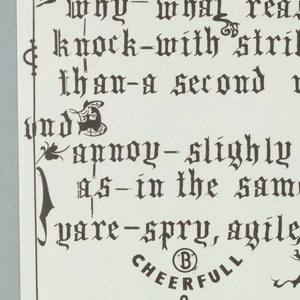 why—what reas
knock-with strik
than-a second
und
annoy—slighly
as-in the same
yare—spry, agile
B
CHEERFULL